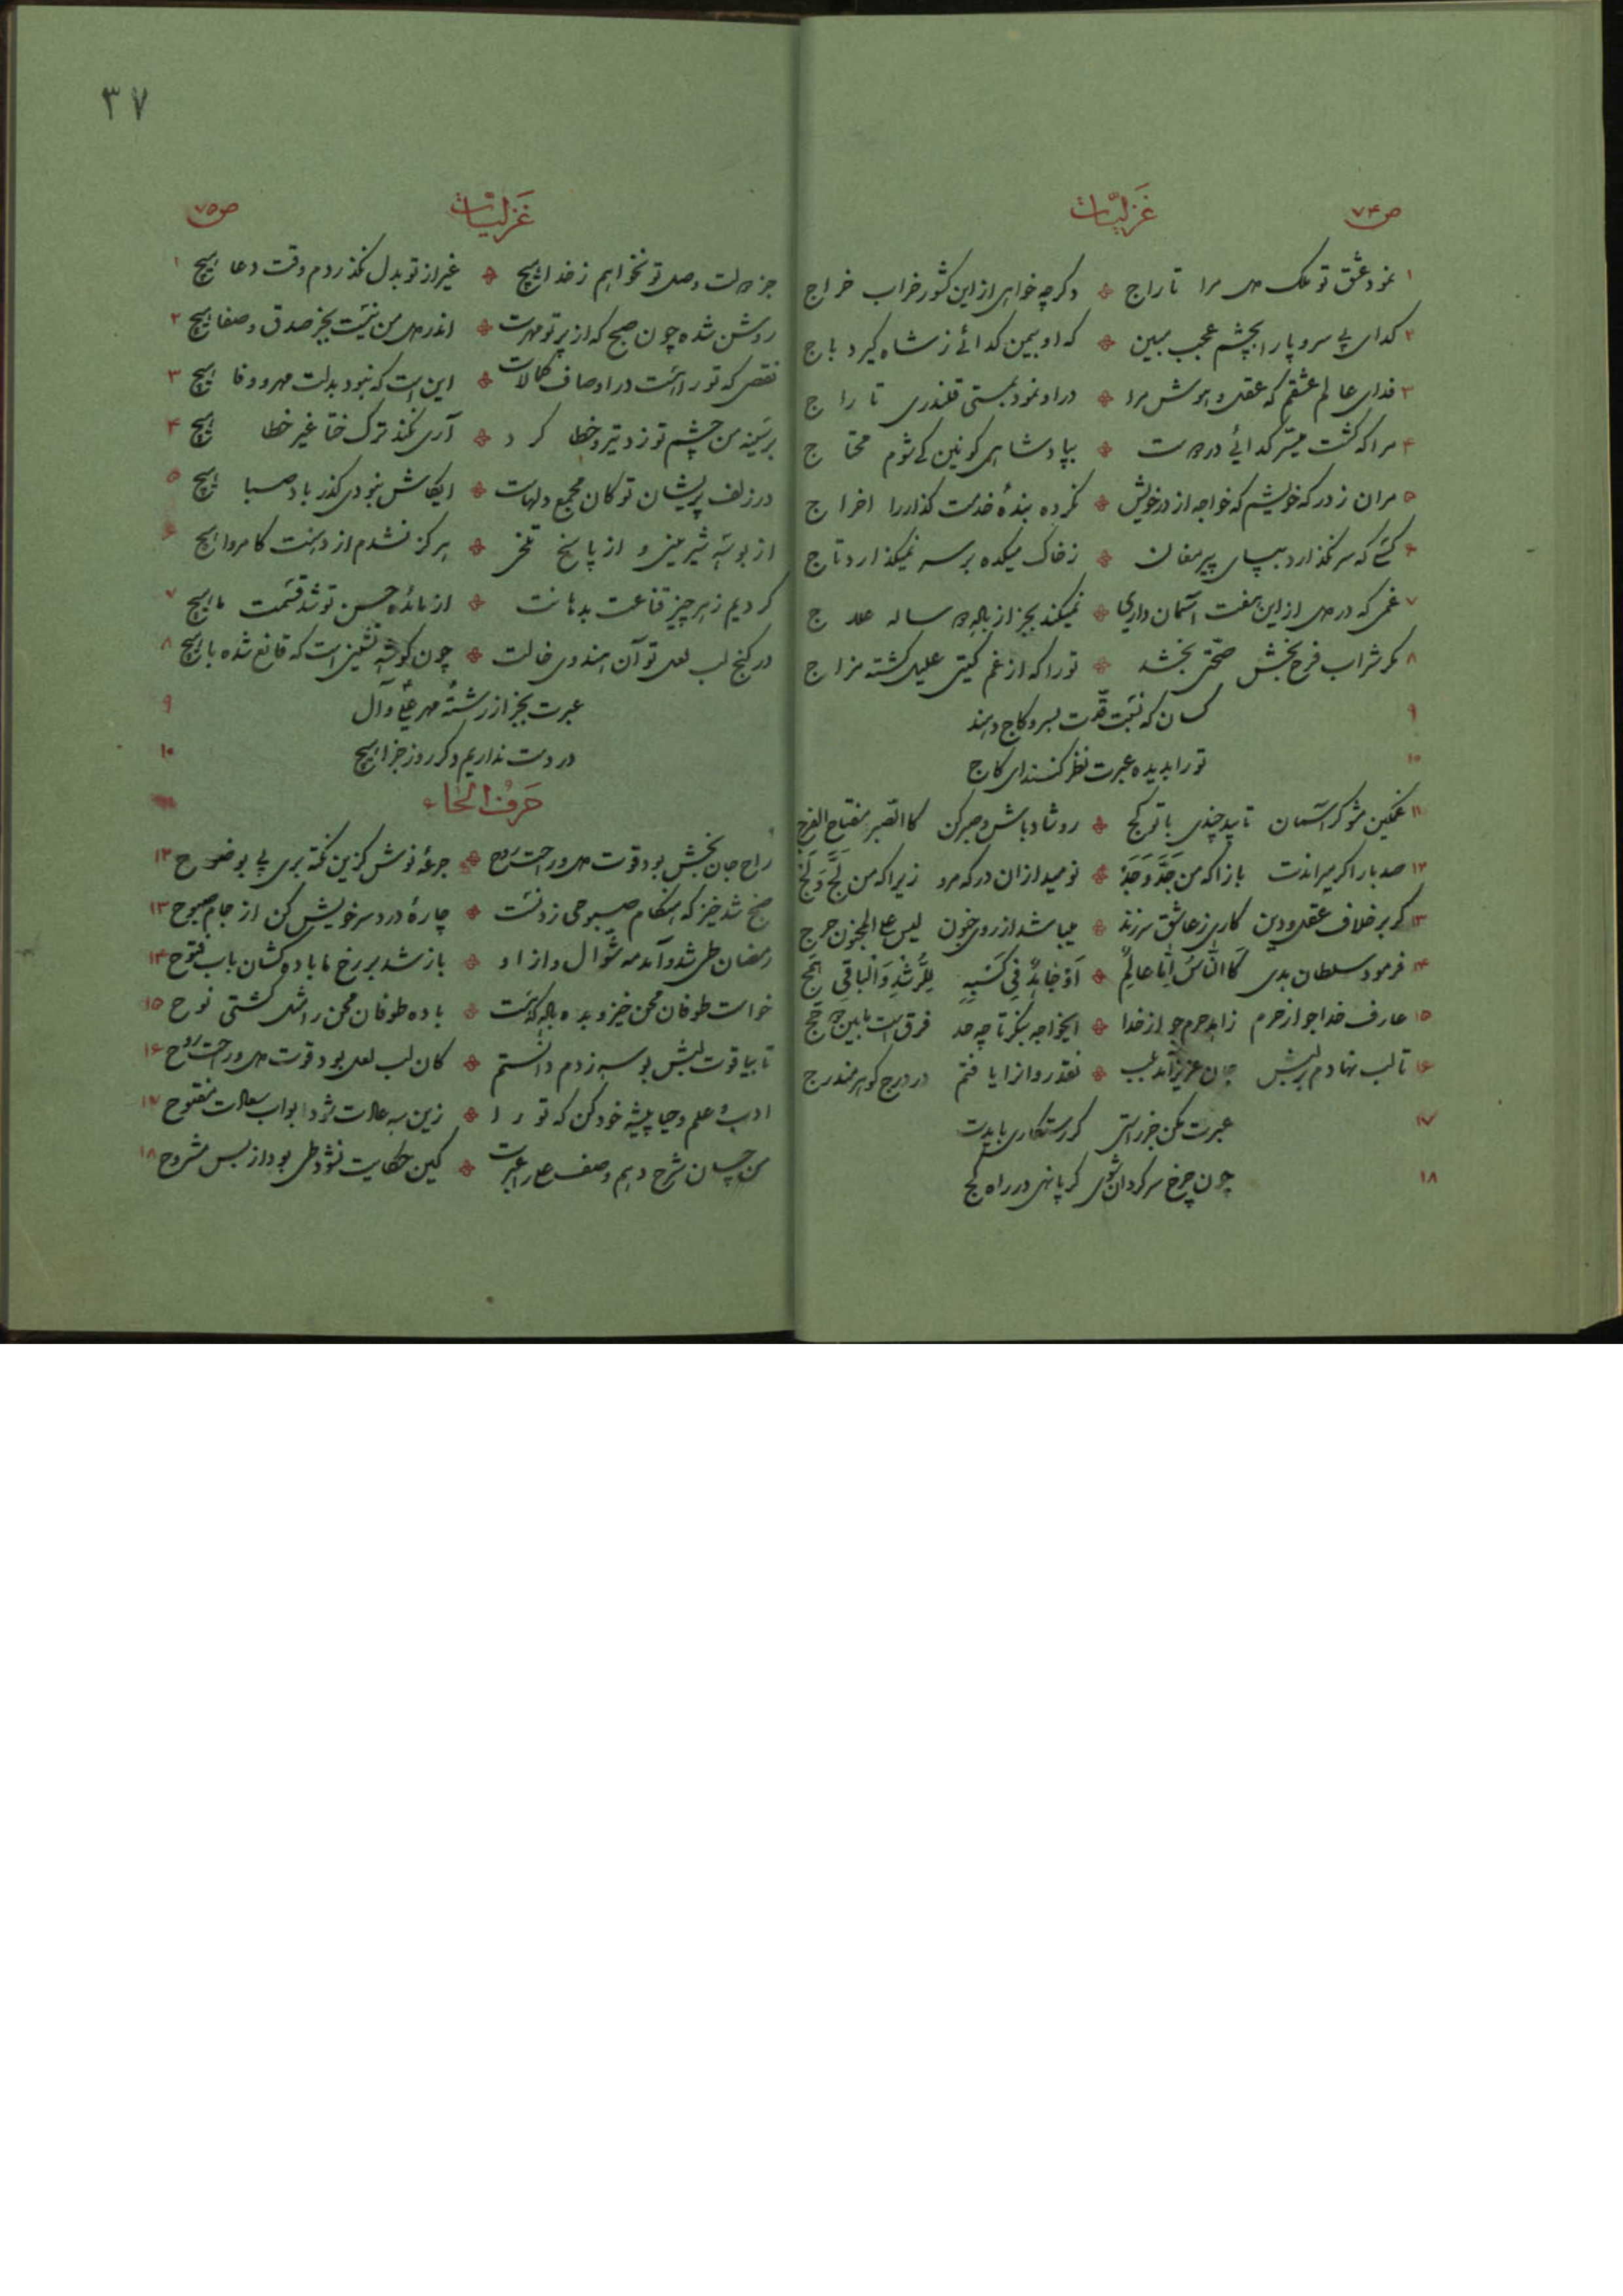 ۳۷
ص ۷۴
غزلیّات
۱ نمود عشق تو ملک دل مرا تاراج دگر چه خواهی از این کشور خراب خراج
۲ کدای بی سر و پا را بچشم عجب مبین که او بیمن کدائے ز شاه کیرد باج
۳ فدای عالم عشقم که عقل و هوش مرا در او نمود بمستی قلندری تاراج
۴ مرا که کشت میسّر کدائے در دوست بپادشاهی کونین کے شوم محتاج
۵ مران ز درکه خویشم که خواجه از در خویش نکرده بندهٔ خدمت کذار را اخراج
۶ کسے که سر نکذارد بپای پیر مغان ز خاک میکده بر سر نمیکذارد تاج
۷ غمی که در دل از این هفت آسمان داری نمیکند بجز از باده ساله علاج
۸ مکر شراب فرح بخش صحّتی بخشد تو را که از غم کیتی علیل کشته مزاج
۹ کسان که نسبت قدّت بسرو و کاج دهند
۱۰ تو را بدیده عبرت نظر کنند ای کاج
۱۱ غمکین مشو کر آسمان تابد چندی با تو کج رو شاد باش و صبر کن کالصّبر مفتاح الفرج
۱۲ صد بار اکر میراندت باز آ که من جَدَّ وَجَدَ نومید از ان درکه مرو زیرا که من لَجَّ وَلَجَ
۱۳ کر بر خلاف عقل و دین کاری ز عاشق سر زند میباشد از روی جنون لیس علی المجنون حرج
۱۴ فرمود سلطان بدی کالنّاسُ امّا عالِمٌ اَوْ جاهِدٌ فی کَسْبِهِ لِلرُّشْدِ وَالْباقی هَمَج
۱۵ عارف خدا جو از حرم زاهد حرم جو از خدا ایخواجه بنکر تا چه حد فرق است مابین حجج
۱۶ تا لب نهادم بر لبش جان عزیز آمد بلب نقد روان را یافتم در درج کوهر مندرج
۱۷ عبرت مکن جز راستی کر رستکاری بایدت
۱۸ چون چرخ سرکردان شوی کر پا نهی در راه کج
ص ۷۵
غزلیّات
جز دولت وصل تو نخواهم ز خدا هیچ غیر از تو بدل نکذردم وقت دعا هیچ ۱
روشن شده چون صبح که از پرتو مهرت اندر دل من نیست بجز صدق و صفا هیچ ۲
نقصی که تو را هست در اوصاف کمالات این است که نبود بدلت مهر و وفا هیچ ۳
بر سینه من چشم تو زد تیر و خطا کرد آری نکند ترک ختا غیر خطا هیچ ۴
در زلف پریشان تو کان مجمع دلهاست ایکاش نبودی کذر باد صبا هیچ ۵
از بوسَه شیرینی و از پاسخ تلخی هرکز نشدم از دهنت کامروا هیچ
کردیم ز هر چیز قناعت بدهانت از مائدهٔ حسن تو شد قسمت ما هیچ ۷
در کنج لب لعل تو آن هندوی خالت چون کوشه نشینی است که قانع شده با هیچ ۸
عبرت بجز از رشتهٔ مهر علی و آل ۹
در دست نداریم دکر روز جزا هیچ ۱۰
حَرفُ الحَاء
راح جان بخش بود قوت دل و راحت روح جرعهٔ نوش کزین نکته بری پی بوضوح ۱۲
صبح شد خیز که هنکام صبوحی زدنست چارهٔ درد سر خویش کن از جام صبوح ۱۳
رمضان طی شد و آمد مه شوّال و از او باز شد بر رخ ما باده کشان باب فتوح ۱۴
خواست طوفان محن خیز و بده باده که هست باده طوفان محن را مثل کشتی نوح ۱۵
تا بیاقوت لبش بوسه زدم دانستم کان لب لعل بود قوت دل و راحت روح ۱۶
ادب و علم و حیا پیشه خود کن که تو را زین سه عادت شود ابواب سعادت مفتوح ۱۷
من چسان شرح دهم وصف عبرت کین حکایت نشود طی بود از بس مشروح ۱۸